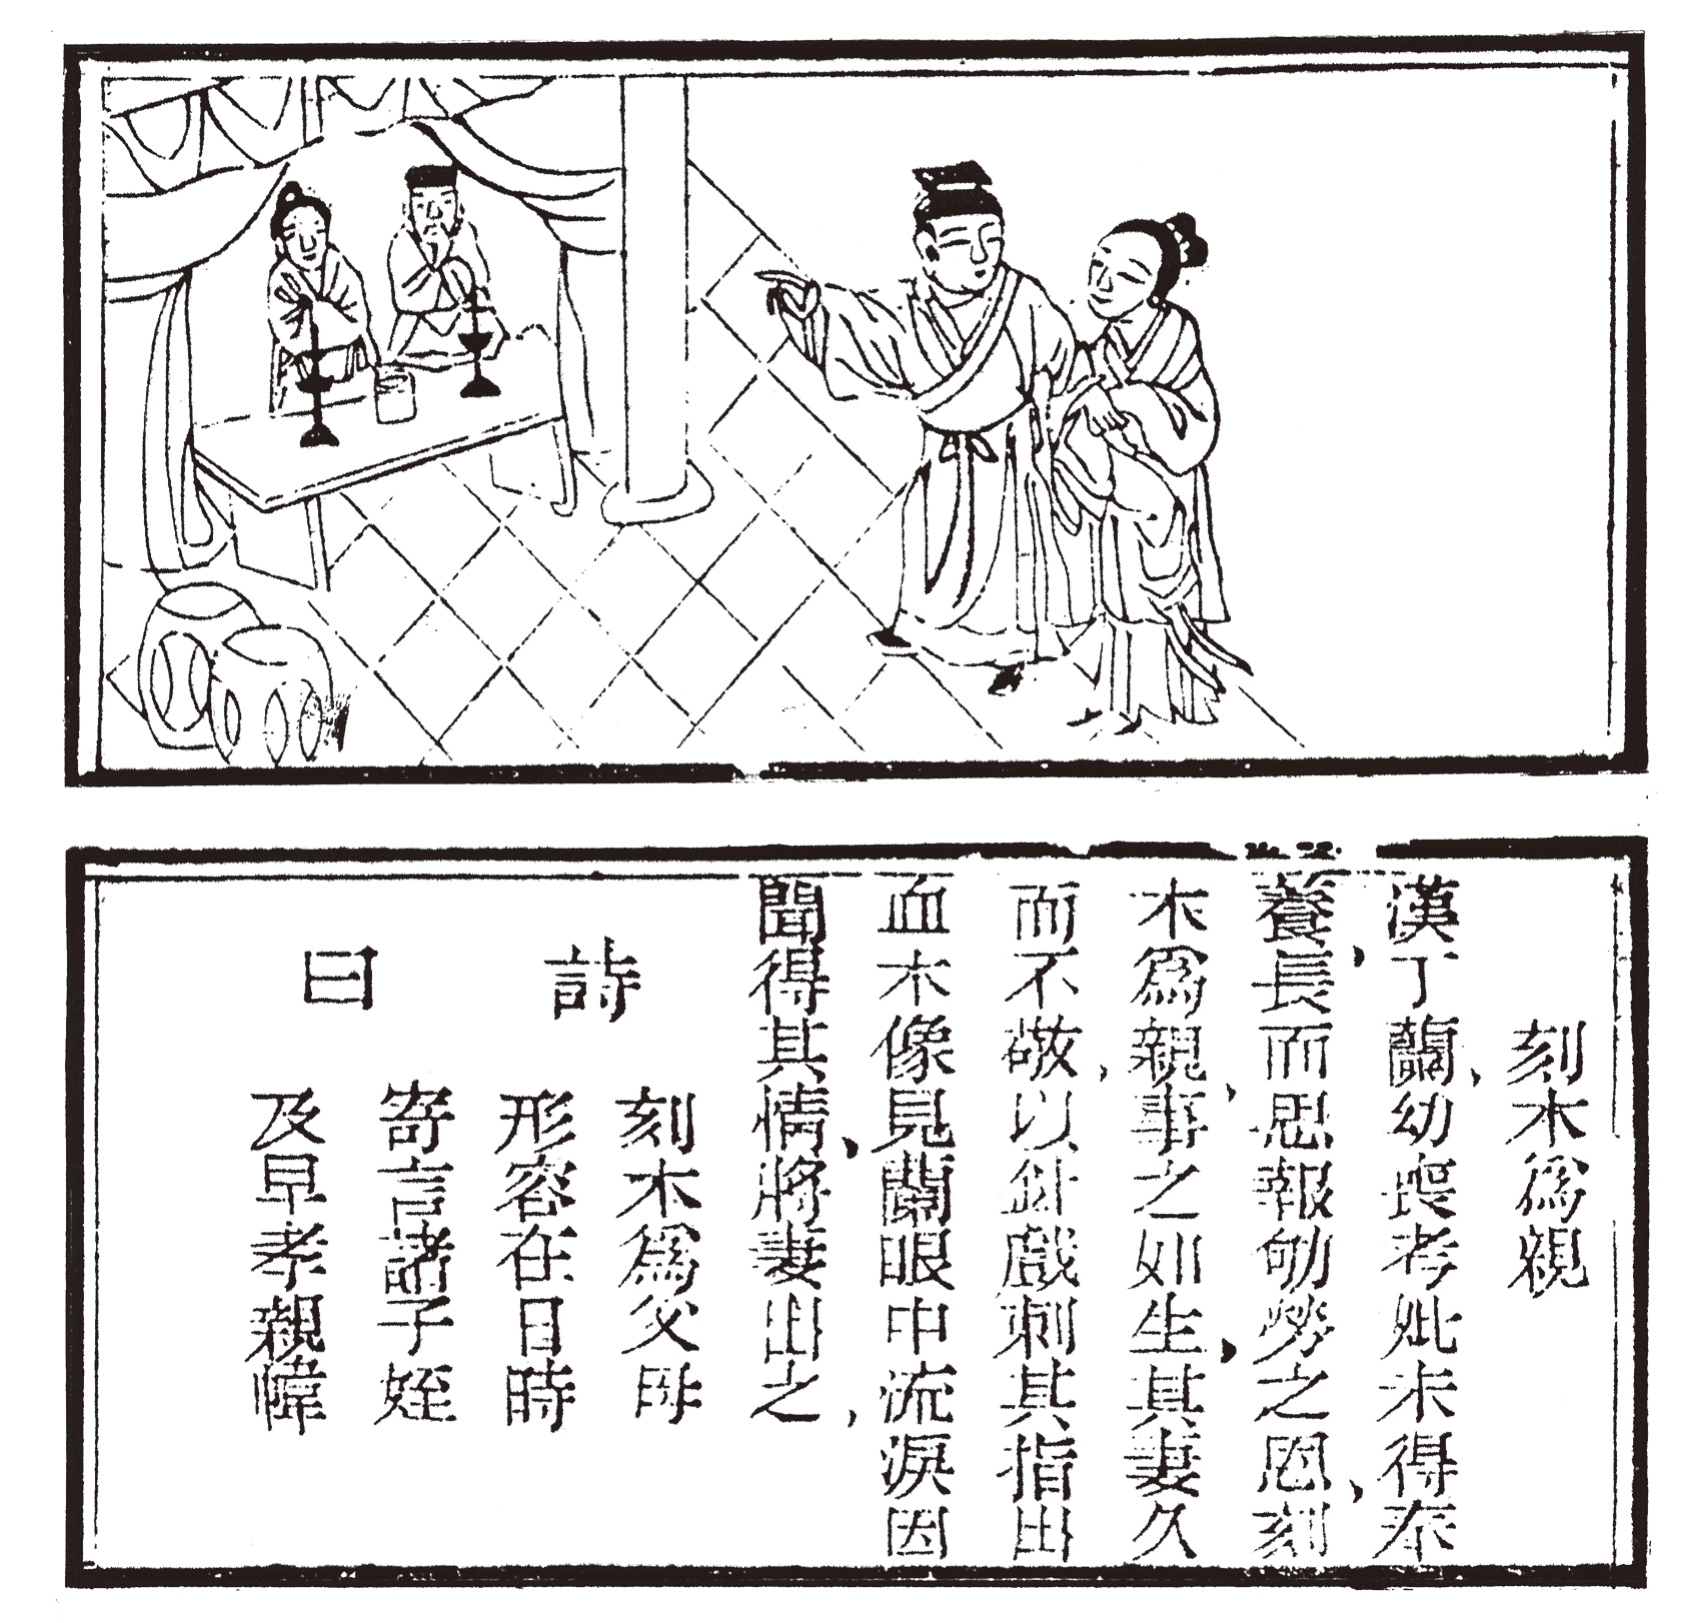 刻木爲親
漢丁蘭幼喪考妣未得奉
養長而思報劬勞之恩刻
木爲親事之如生其妻久
而不敬以針戲刺其指出
血木像見蘭眼中流淚因
聞得其情將妻出之
詩曰
刻木爲父母
形容在日時
寄言諸子姪
及早孝親幃